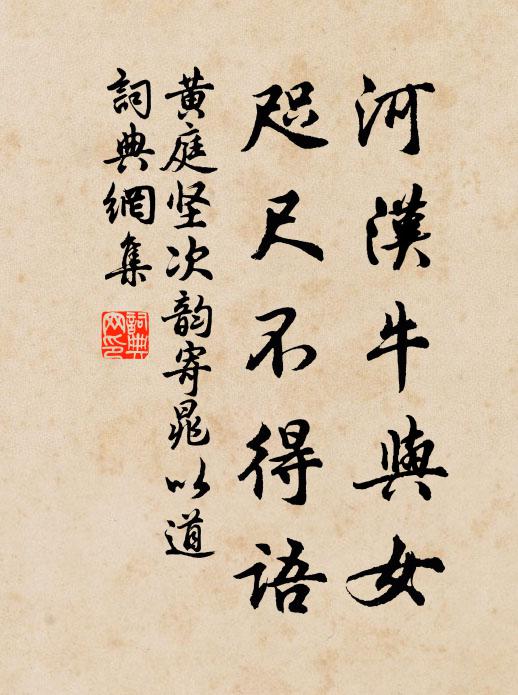 河漢牛與女
咫尺不得語
黄庭坚次韵寄晁以道
詞典網集
詞典網印